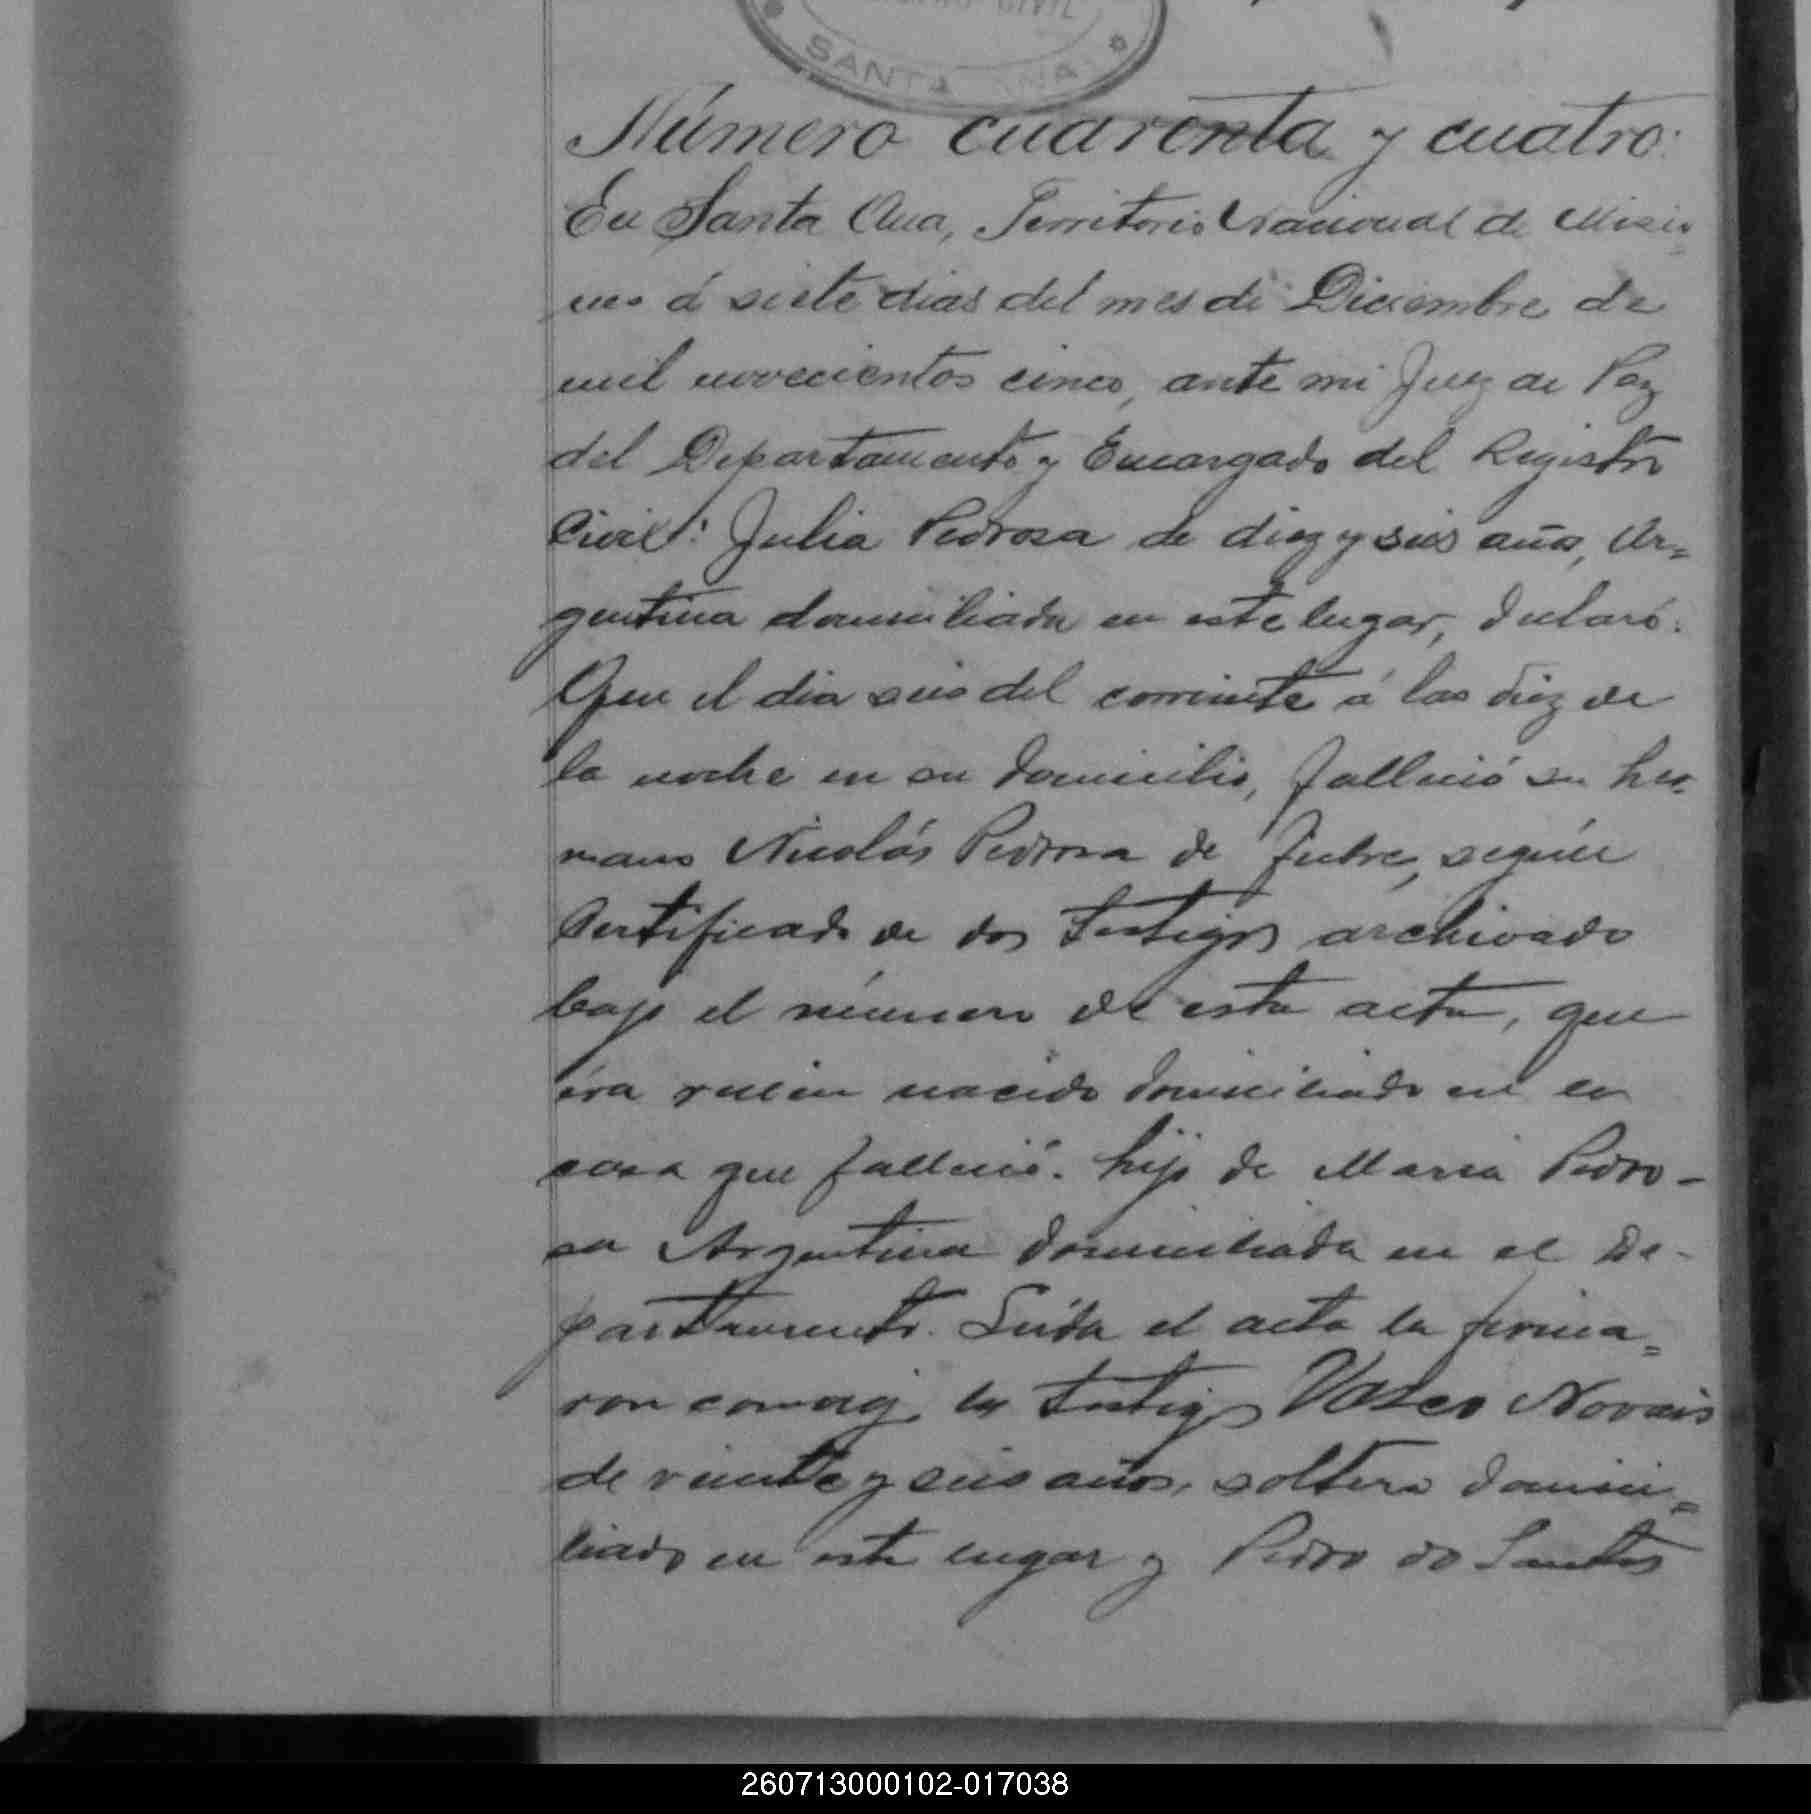 CIVIL
SANTA ANA
Número cuarenta y cuatro:
En Santa Ana, Territorio Nacional de Misio
nes á siete dias del mes de Diciembre de
mil novecientos cinco, ante mi Juez de Paz
del Departamento y Encargado del Registro
Civil: Julia Pedrosa de diez y seis años, Ar=
gentina domiciliada en este lugar, declaró:
Que el dia seis del corriente á las diez de
la noche en su domicilio, falleció su her-
mano Nicolás Pedrosa de fiebre, según
Certificado de dos testigos archivado
bajo el número de esta acta, que
éra recien nacido domiciliado en la
casa que falleció. hijo de Maria Pedro-
sa Argentina domiciliada en el De-
partamento. Leída el acta la firma=
ron conmigo los testigos Vasco Novais
de veinte y seis años, soltero domici=
liado en este lugar y Pedro do Santos
260713000102-017038